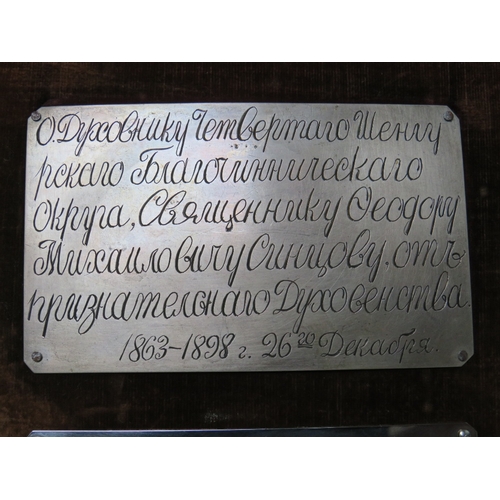 О. Духовнику Четвертаго Шенгу
рскаго Благочинническаго
Округа, Священнику Ѳеодору
Михаиловичу Синцову. отъ
признателснаго Духовенства
1863-1898 г. 26го Декабря.